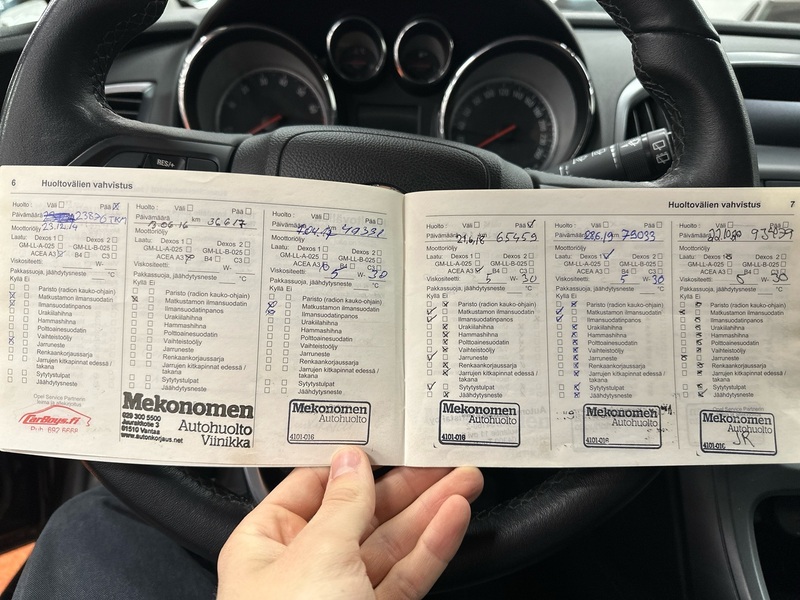 6 Huoltovälien vahvistus
Huolto: Väli Pää
Päivämäärä 23876 TKM
23.12.14
Moottoriöljy
Laatu: Dexos 1 Dexos 2
GM-LL-A-025 GM-LL-B-025
ACEA A3 B4 C3
Viskositeetti W-
Pakkassuoja, jäähdytysneste °C
Kyllä Ei
Paristo (radion kauko-ohjain)
Matkustamon ilmansuodatin
Ilmansuodatinpanos
Urakiilahihna
Hammashihna
Polttoainesuodatin
Vaihteistoöljy
Jarruneste
Renkaankorjaussarja
Jarrujen kitkapinnat edessä /
takana
Sytytystulpat
Jäähdytysneste
Opel Service Partnerin
leima ja allekirjoitus
CarBoys.fi
Huolto: Väli Pää
Päivämäärä 06 16 km 36617
Moottoriöljy
Laatu: Dexos 1 Dexos 2
GM-LL-A-025 GM-LL-B-025
ACEA A3 B4 C3
Viskositeetti W-
Pakkassuoja, jäähdytysneste °C
Kyllä Ei
Paristo (radion kauko-ohjain)
Matkustamon ilmansuodatin
Ilmansuodatinpanos
Urakiilahihna
Hammashihna
Polttoainesuodatin
Vaihteistoöljy
Jarruneste
Renkaankorjaussarja
Jarrujen kitkapinnat edessä /
takana
Sytytystulpat
Jäähdytysneste
Mekonomen
029 300 5500
Juurakkotie 3
01510 Vantaa
www.autonkorjaus.net
Autohuolto
Viinikka
Huolto: Väli Pää
Päivämäärä
Moottoriöljy
Laatu: Dexos 1 Dexos 2
GM-LL-A-025 GM-LL-B-025
ACEA A3 B4 C3
Viskositeetti 5 W- 30
Pakkassuoja, jäähdytysneste °C
Kyllä Ei
Paristo (radion kauko-ohjain)
Matkustamon ilmansuodatin
Ilmansuodatinpanos
Urakiilahihna
Hammashihna
Polttoainesuodatin
Vaihteistoöljy
Jarruneste
Renkaankorjaussarja
Jarrujen kitkapinnat edessä /
takana
Sytytystulpat
Jäähdytysneste
Mekonomen
Autohuolto
4101-016
Huoltovälien vahvistus 7
Huolto: Väli Pää
Päivämäärä 21.6.18 65459
Moottoriöljy
Laatu: Dexos 1 Dexos 2
GM-LL-A-025 GM-LL-B-025
ACEA A3 B4 C3
Viskositeetti 5 W- 30
Pakkassuoja, jäähdytysneste °C
Kyllä Ei
Paristo (radion kauko-ohjain)
Matkustamon ilmansuodatin
Ilmansuodatinpanos
Urakiilahihna
Hammashihna
Polttoainesuodatin
Vaihteistoöljy
Jarruneste
Renkaankorjaussarja
Jarrujen kitkapinnat edessä /
takana
Sytytystulpat
Jäähdytysneste
Mekonomen
Autohuolto
4101-016
Huolto: Väli Pää
Päivämäärä 28.6.19 km 79033
Moottoriöljy
Laatu: Dexos 1 Dexos 2
GM-LL-A-025 GM-LL-B-025
ACEA A3 B4 C3
Viskositeetti 5 W- 30
Pakkassuoja, jäähdytysneste °C
Kyllä Ei
Paristo (radion kauko-ohjain)
Matkustamon ilmansuodatin
Ilmansuodatinpanos
Urakiilahihna
Hammashihna
Polttoainesuodatin
Vaihteistoöljy
Jarruneste
Renkaankorjaussarja
Jarrujen kitkapinnat edessä /
takana
Sytytystulpat
Jäähdytysneste
Mekonomen
Autohuolto
4101-016
Huolto: Väli Pää
Päivämäärä
Moottoriöljy
Laatu: Dexos 1 Dexos 2
GM-LL-A-025 GM-LL-B-025
ACEA A3 B4 C3
Viskositeetti 5 W- 30
Pakkassuoja, jäähdytysneste °C
Kyllä Ei
Paristo (radion kauko-ohjain)
Matkustamon ilmansuodatin
Ilmansuodatinpanos
Urakiilahihna
Hammashihna
Polttoainesuodatin
Vaihteistoöljy
Jarruneste
Renkaankorjaussarja
Jarrujen kitkapinnat edessä /
takana
Sytytystulpat
Jäähdytysneste
Mekonomen
Autohuolto
JR
RES/+